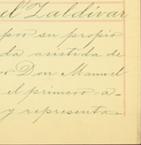 el Zaldívar
por su propio
da asistida de
r Don Manuel
el primero a-
y representa-